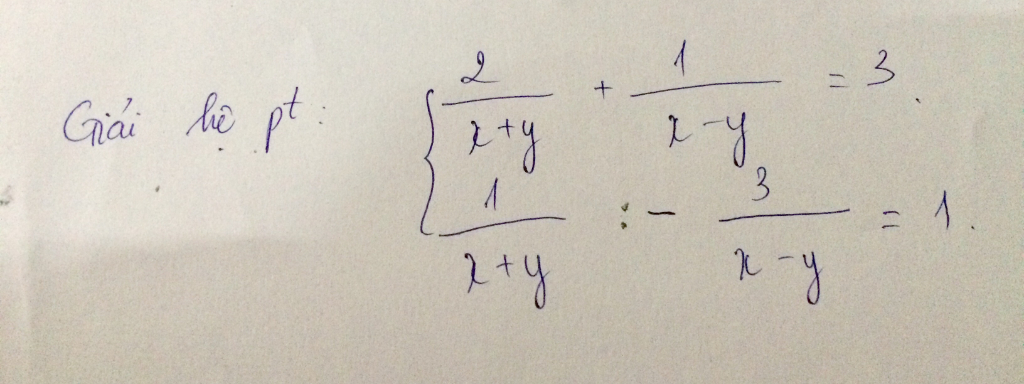 Giải hệ pt: { 2/(x+y) + 1/(x-y) = 3.
1/(x+y) :- 3/(x-y) = 1.